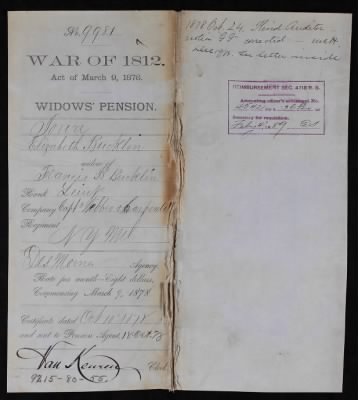 No. 9981
WAR OF 1812.
Act of March 9, 1878.
WIDOWS' PENSION.
Iowa
Elizabeth Bucklin
widow of
Francis B Bucklin
Rank Lieut
Company Capt
Regiment N.Y. Mil
Des Moines Agency.
Rate per month—Eight dollars,
Commencing March 9, 1878
Certificate dated Oct 10 1878
and sent to Pension Agent 18 Oct. 78
Van Keuren Clerk.
9215-80-55.
1878 Oct. 24. Third Auditor
See letter inside
REIMBURSEMENT SEC. 4718 R. S.
Accounting officer's settlement No.